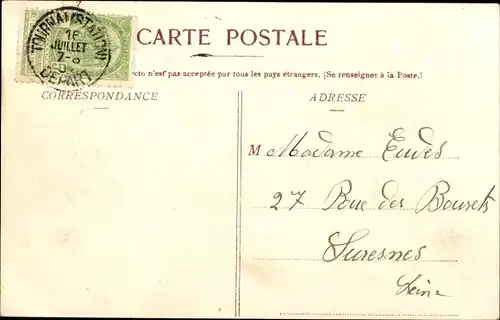 TOURNAI (STATION)
16
JUILLET
7-8
DÉPART
CARTE POSTALE
cto n'est pas acceptée par tous les pays étrangers. (Se renseigner à la Poste.)
CORRESPONDANCE
ADRESSE
M Madame Eudes
27 Rue des Bourets
Suresnes
Seine